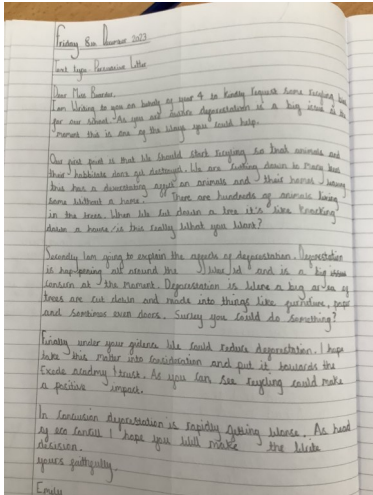 Friday 8th December 2023
Text type: Persuasive Letter
Dear Miss
I am writing to you on behalf of year 4 to kindly request some recycling bins
for our school. As you are aware deforestation is a big issue at the
moment this is one of the ways you could help.
Our first point is that we should start recycling so that animals and
their habbitats does not destroyed. We are cutting down to many trees
this has a devestating affect on animals and their homes leaving
some without a home. There are hundreds of animals living
in the trees. When we cut down a tree it's like knocking
down a house, is this really what you want?
Secondly I am going to explain the affects of deforestation. Deforestation
is happening all around the world and is a big issue
consern at the moment. Deforestation is were a big area of
trees are cut down and made into things like furniture, paper
and somtimes even doors. Surley you could do something?
Finally under your gidence we could reduce deforestation. I hope
take this matter into consideration and put it towards the
academy trust. As you can see recycling could make
a positive impact.
In conclusion deforestation is rapidly getting worse. As head
of eco I hope you will make the
decision.
yours faithfully.
Emely